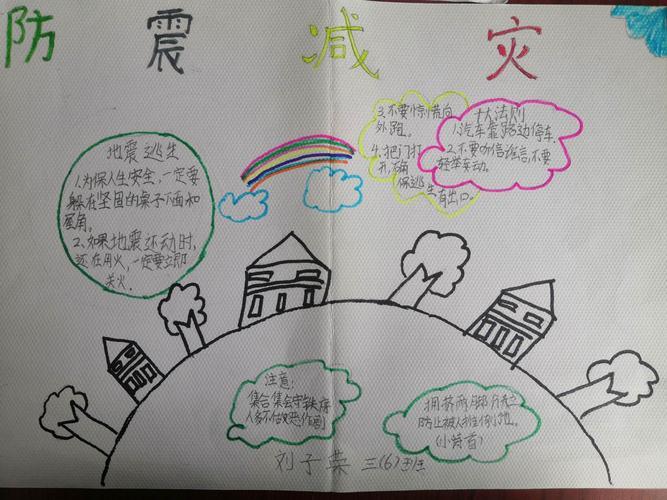 防震减灾
地震逃生
1.为保人生安全,一定要
躲在坚固的桌子下面和
屋角。
2、如果地震还动时,
还在用火,一定要立即
关火.
3.不要惊慌向
外跑。
4.把门打
开,确
保逃生有出口。
十大法则
1.汽车靠路边停车.
2.不要听信谣言,不要
轻举妄动.
注意:
集合集会守秩序
人多不
拥挤两脚
防止被人推倒地。
(小
刘子荣 三(6)班